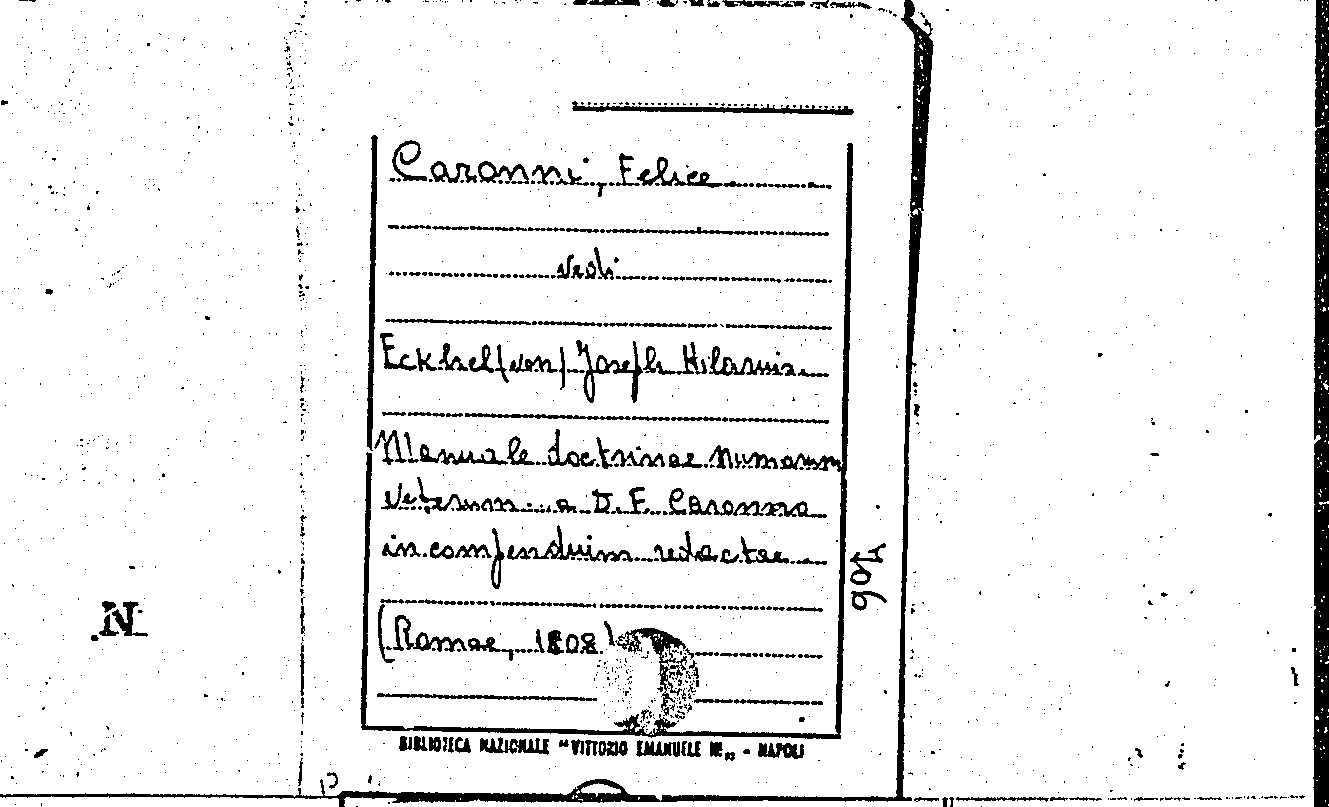 Caronni, Felice
vedi
Eckhel (von) Joseph Hilarius.
Manuale doctrinae numorum
veterum... a D. F. Caronno
in compenduim redactae
(Romae, 1808)
106
N
BIBLIOTECA NAZIONALE "VITTORIO EMANUELE III„ - NAPOLI